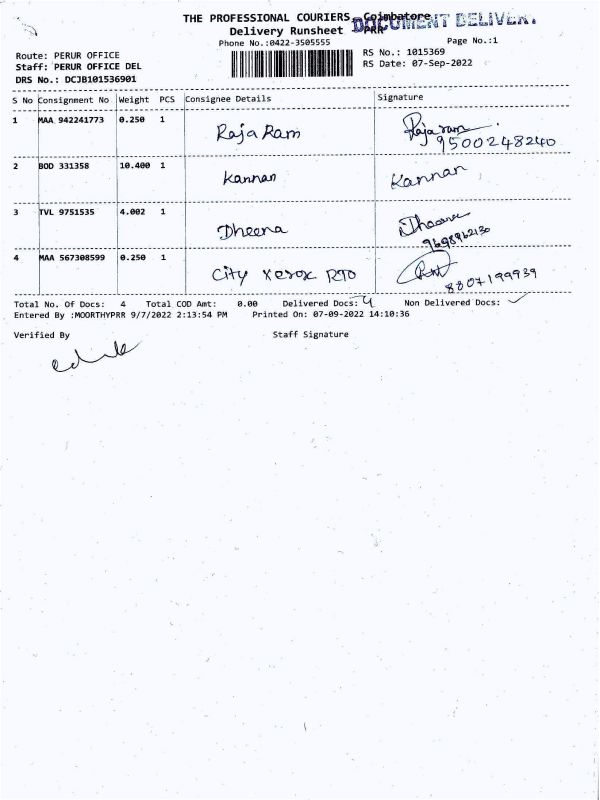 THE PROFESSIONAL COURIERS Coimbatore
Delivery Runsheet PRR
DOCUMENT DELIVERY
Phone No.:0422-3505555
Page No.:1
Route: PERUR OFFICE
RS No.: 1015369
Staff: PERUR OFFICE DEL
RS Date: 07-Sep-2022
DRS No.: DCJB101536901
S No Consignment No Weight PCS Consignee Details Signature
1 MAA 942241773 0.250 1 Raja Ram Raja ram
9500248240
2 BOD 331358 10.400 1 Kannan Kannan
3 TVL 9751535 4.002 1 Dheena Dheena
9698962130
4 MAA 567308599 0.250 1 City Xerox RTO
8807199939
Total No. Of Docs: 4 Total COD Amt: 0.00 Delivered Docs: 4 Non Delivered Docs:
Entered By :MOORTHYPRR 9/7/2022 2:13:54 PM Printed On: 07-09-2022 14:10:36
Verified By Staff Signature